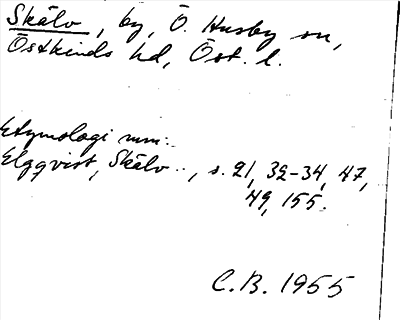 Skälv, by, Ö. Husby sn,
Östkinds hd, Öst. l.
Etymologi mm:
Elgqvist, Skälv.., s. 21, 32-34, 47,
49, 155.
C.B. 1955